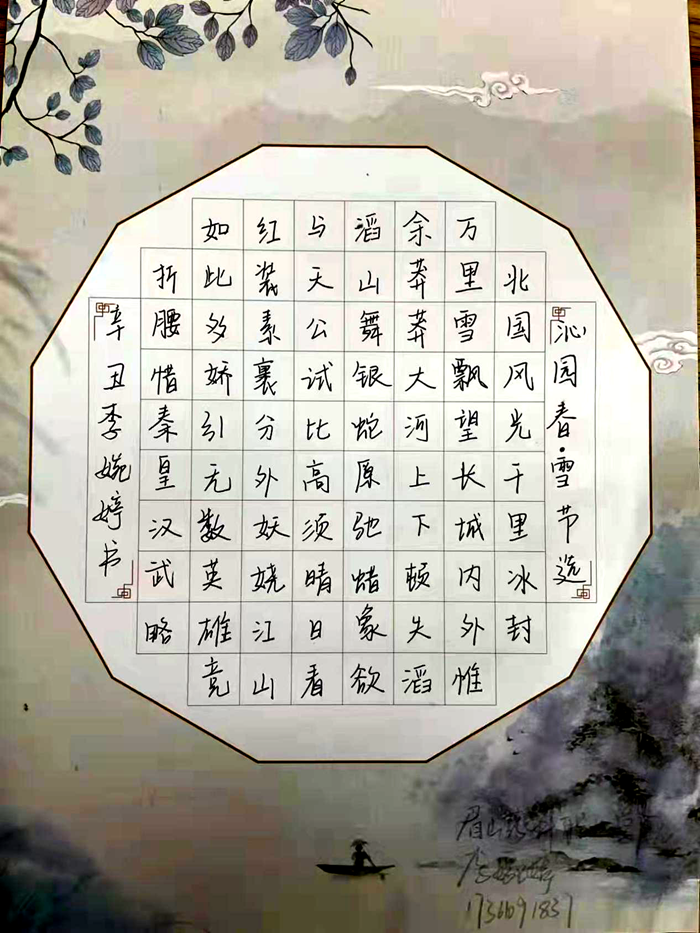 沁园春·雪 节选
北国风光千里冰封
万里雪飘望长城内外惟
余莽莽大河上下顿失滔
滔山舞银蛇原驰蜡象欲
与天公试比高须晴日看
红装素裹分外妖娆江山
如此多娇引无数英雄竞
折腰惜秦皇汉武略
辛丑李婉婷书
眉山